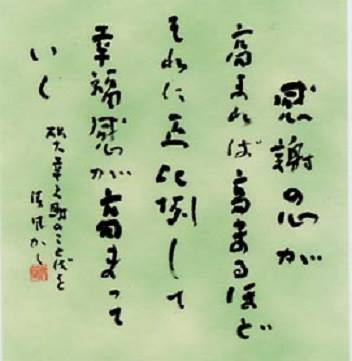 感謝の心が
高まれば高まるほど
それに正比例して
幸福感が高まって
いく
松下幸之助のことばを